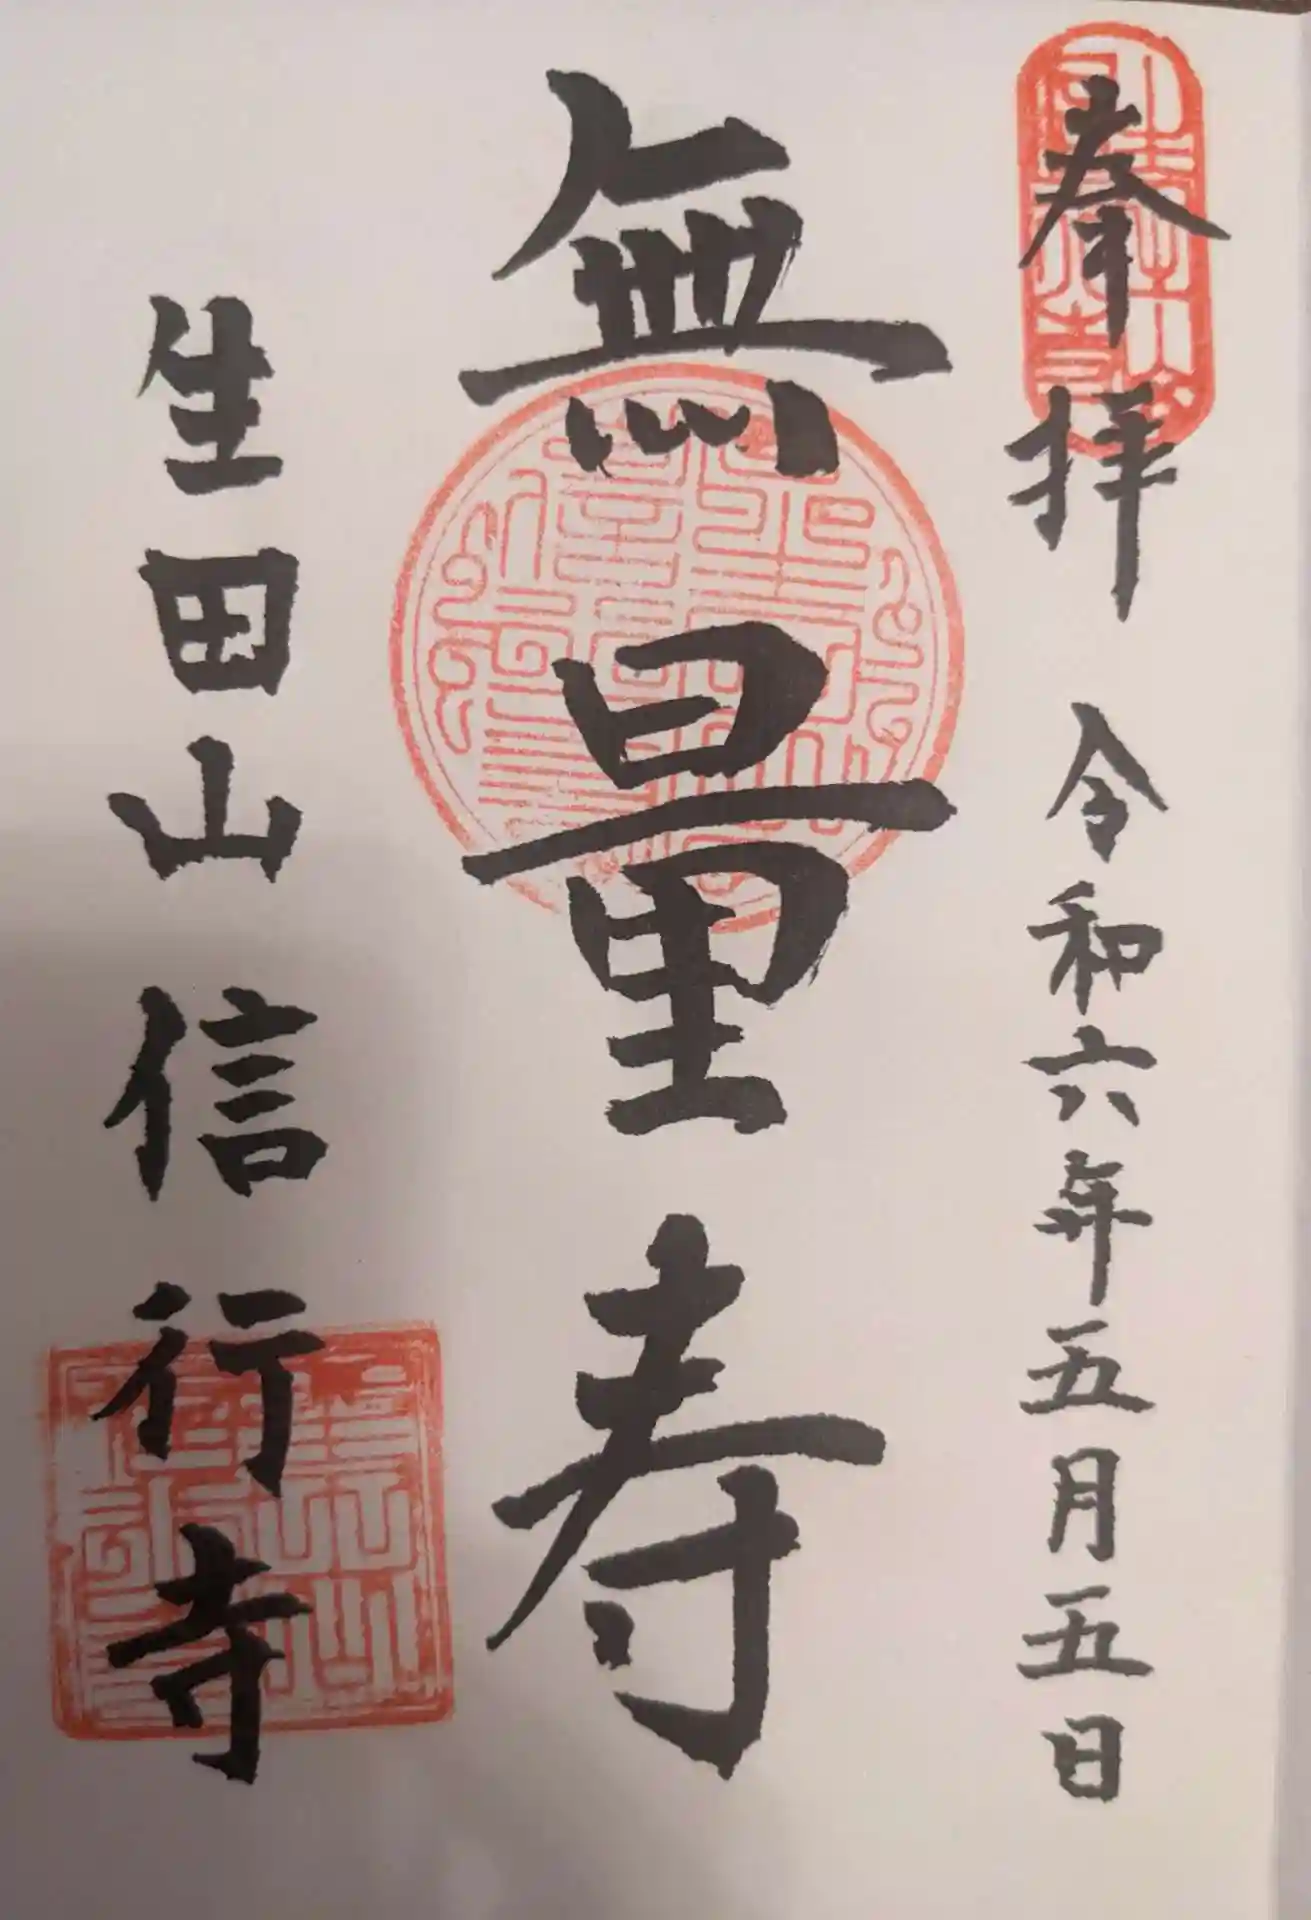 奉拝 令和六年五月五日
無量寿
生田山信行寺